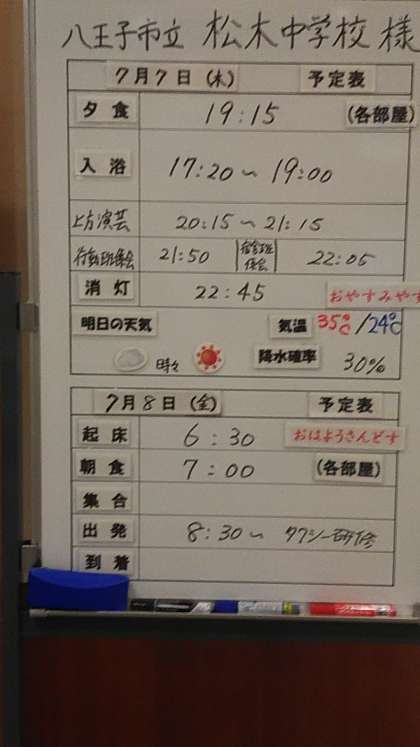 八王子市立 松木中学校 様
7月7日(木) 予定表
夕食 19:15 (各部屋)
入浴 17:20～19:00
上方演芸 20:15～21:15
21:50 22:05
消灯 22:45 おやすみやす
明日の天気 気温 35℃/24℃
時々 降水確率 30%
7月8日(金) 予定表
起床 6:30 おはようさんどす
朝食 7:00 (各部屋)
集合
出発 8:30～ タクシー研修
到着